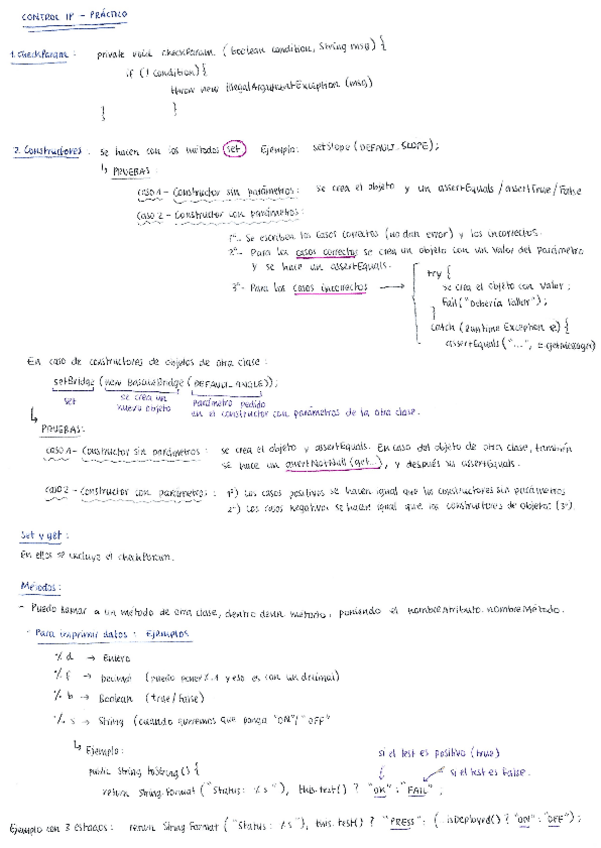 CONTROL IP - PRÁCTICO
1. CheckParam : private void checkParam (boolean condition, String msg) {
if (! condition) {
throw new IllegalArgumentException (msg)
}
}
2. Constructores : se hacen con los métodos set Ejemplo: setSlope (DEFAULT_SLOPE);
↳ PRUEBAS :
caso 1 - Constructor sin parámetros : se crea el objeto y un assertEquals / assertTrue / False
caso 2 - Constructor con parámetros :
1º- Se escriben los casos correctos (no dan error) y los incorrectos.
2º- Para los casos correctos se crea un objeto con un valor del parámetro
y se hace un assertEquals.
3º- Para los casos incorrectos →
try {
se crea el objeto con valor ;
fail ("Debería fallar");
}
catch (Runtime Exception e) {
assertEquals ("...", e.getMessage)
En caso de constructores de objetos de otra clase :
setBridge (new BasculeBridge (DEFAULT_ANGLE));
set se crea un nuevo objeto parámetro pedido
en el constructor con parámetros de la otra clase.
↳ PRUEBAS:
caso 1 - Constructor sin parámetros : se crea el objeto y assertEquals. En caso del objeto de otra clase, también
se hace un assertNotNull (get...), y después su assertEquals.
caso 2 - Constructor con parámetros : 1º) Los casos positivos se hacen igual que los constructores sin parámetros
2º) Los casos negativos se hacen igual que los constructores de objetos (3º).
Set y get :
En ellos se incluye el checkParam.
Métodos :
- Puedo llamar a un método de otra clase, dentro de un método, poniendo el nombreAtributo.nombreMétodo.
- Para imprimir datos : Ejemplos
%d → Entero
%f → Decimal (puedo poner %.1 y eso es con un decimal)
%b → Boolean (true / False)
%s → String (cuando queremos que ponga "ON"/"OFF"
↳ Ejemplo :
public String toString () {
return String.format ("Status: %s"), this.test() ? "OK" : "FAIL" ;
si el test es positivo (true)
si el test es false.
Ejemplo con 3 estados : return String.Format ("Status : %s"), this.test() ? "PRESS" : ( .isDeployed() ? "ON" : "OFF");